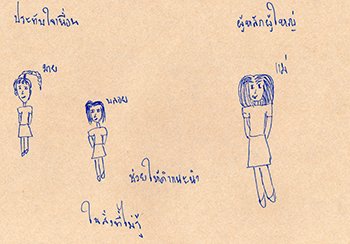 ประทับใจเพื่อน
ผู้หลักผู้ใหญ่
มาย
แม่
พลอย
ช่วยให้คำแนะนำ
ในสิ่งที่ไม่รู้